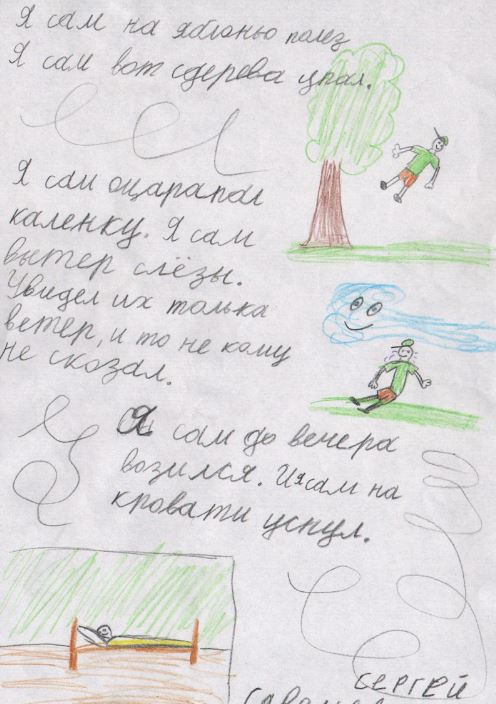 Я сам на яблонью полез
Я сам вот сдерева упал.
Я сам оцарапал
каленку. Я сам
вытер слёзы.
Увидел их толька
ветер, и то не кому
не скозал.
Я сам до вечера
возился. И я сам на
кровати уснул.
СЕРГЕЙ